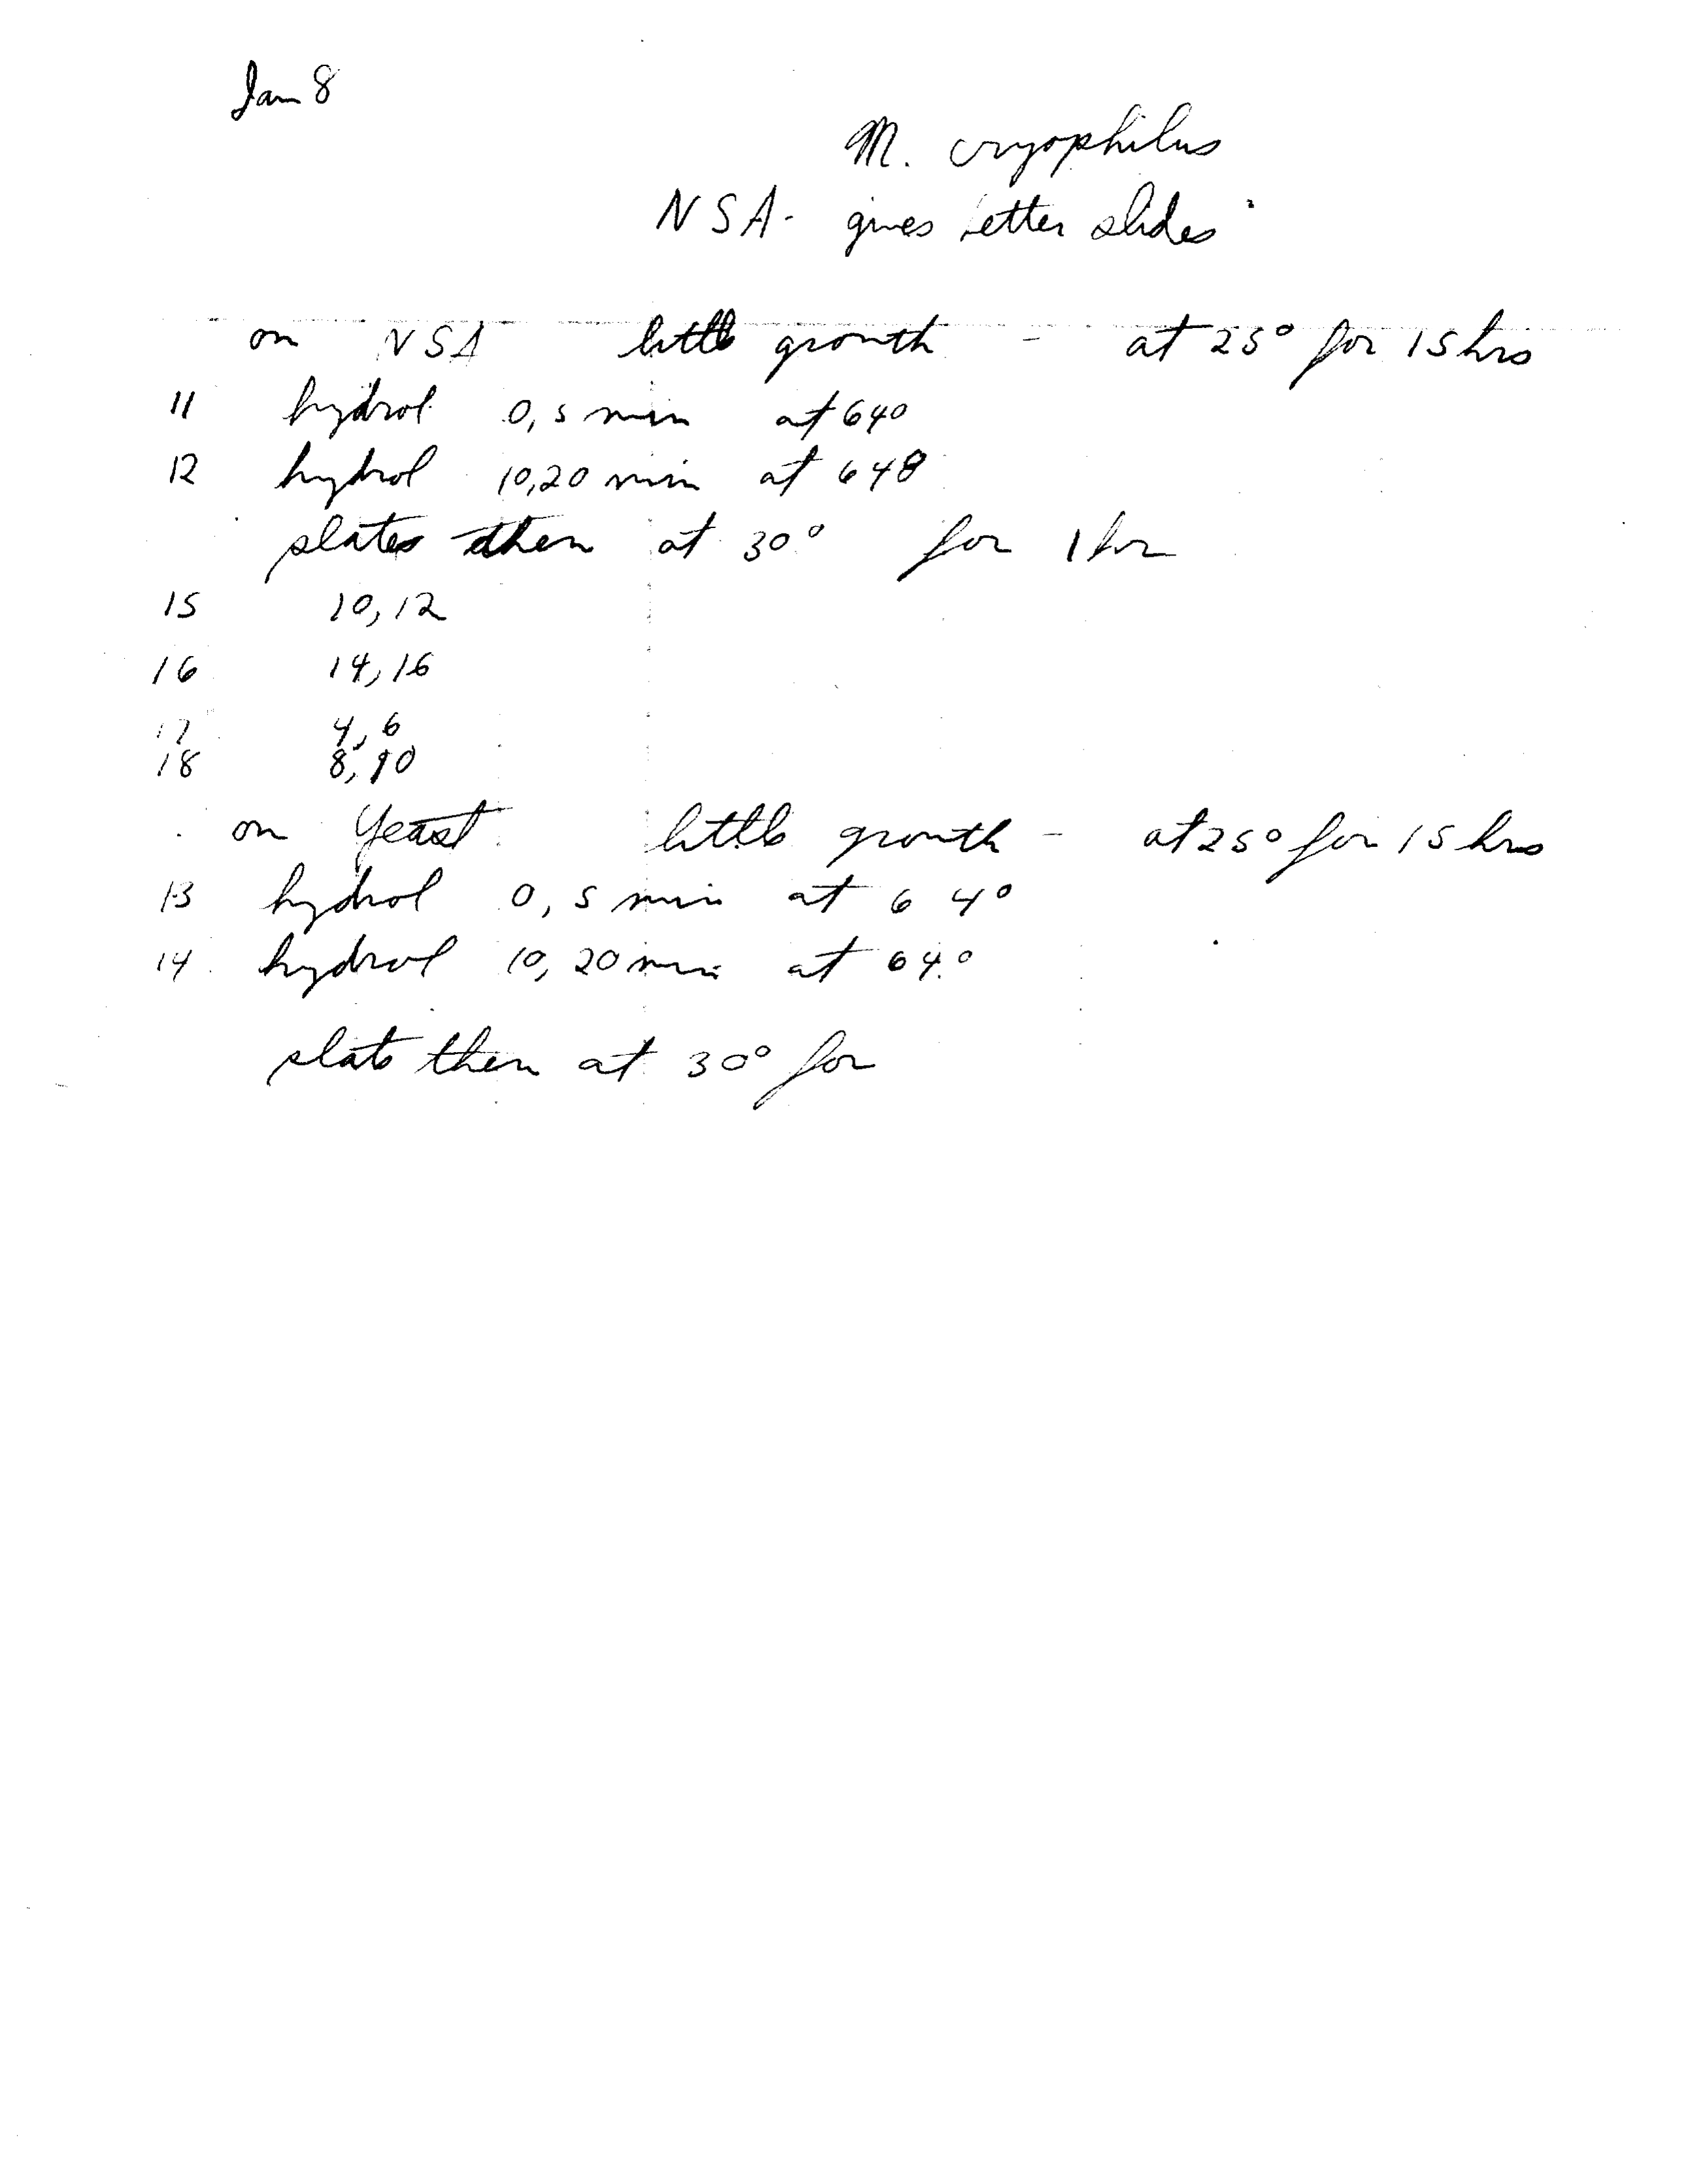 Jan 8
M. cryophilus
NSA - gives better slides
on NSA little growth - at 25° for 15 hrs
11 hydrol 0, 5 min at 64°
12 hydrol 10, 20 min at 648
plates then at 30° for 1 hr
15 10, 12
16 14, 16
17 4, 6
18 8, 10
on Yeast little growth - at 25° for 15 hrs
13 hydrol 0, 5 min at 64°
14 hydrol 10, 20 min at 64°
plate then at 30° for